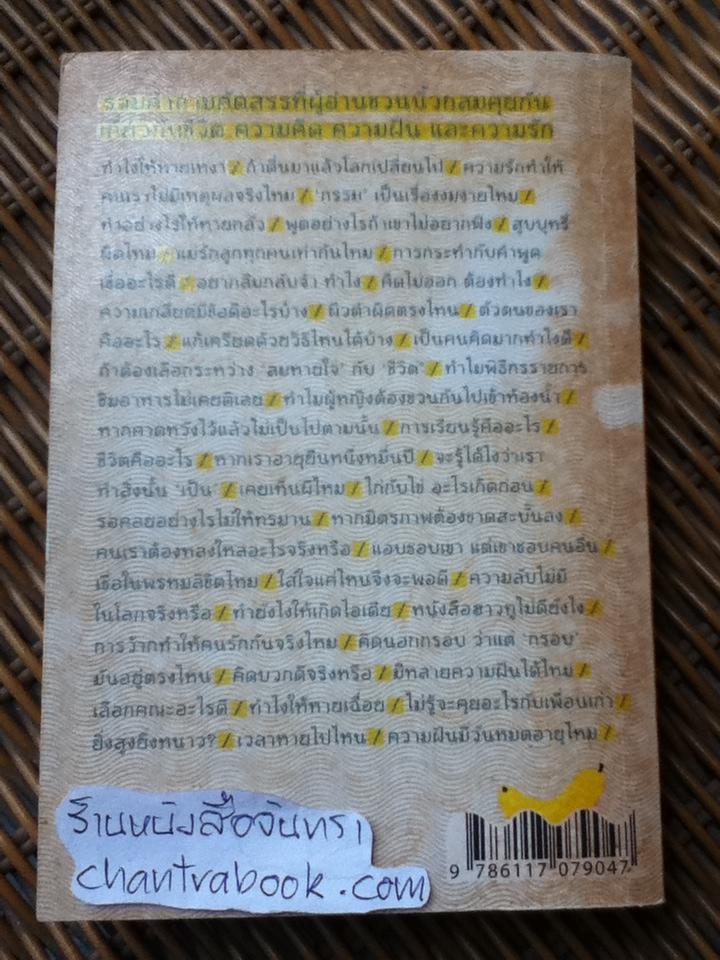 รวมคำถามคัดสรรที่ผู้อ่านชวนนิ้วกลมคุยกัน
เกี่ยวกับชีวิต ความคิด ความฝัน และความรัก
ทำไงให้หายเหงา / ถ้าตื่นมาแล้วโลกเปลี่ยนไป / ความรักทำให้
คนเราไม่มีเหตุผลจริงไหม / 'กรรม' เป็นเรื่องงมงายไหม /
ทำอย่างไรให้หายกลัว / พูดอย่างไรถ้าเขาไม่อยากฟัง / สูบบุหรี่
ผิดไหม / แม่รักลูกทุกคนเท่ากันไหม / การกระทำกับคำพูด
เชื่ออะไรดี / อยากลืมกลับจำ ทำไง / คิดไม่ออก ต้องทำไง /
ความเกลียดมีข้อดีอะไรบ้าง / ผิวดำผิดตรงไหน / ตัวตนของเรา
คืออะไร / แก้เครียดด้วยวิธีไหนได้บ้าง / เป็นคนคิดมากทำไงดี /
ถ้าต้องเลือกระหว่าง 'ลมหายใจ' กับ 'ชีวิต' / ทำไมพิธีกรรายการ
ชิมอาหารไม่เคยติเลย / ทำไมผู้หญิงต้องชวนกันไปเข้าห้องน้ำ /
หากคาดหวังไว้แล้วไม่เป็นไปตามนั้น / การเรียนรู้คืออะไร /
ชีวิตคืออะไร / หากเราอายุยืนหนึ่งหมื่นปี / จะรู้ได้ไงว่าเรา
ทำสิ่งนั้น 'เป็น' / เคยเห็นผีไหม / ไก่กับไข่ อะไรเกิดก่อน /
รอคอยอย่างไรไม่ให้ทรมาน / หากมิตรภาพต้องขาดสะบั้นลง /
คนเราต้องหลงใหลอะไรจริงหรือ / แอบชอบเขา แต่เขาชอบคนอื่น /
เชื่อในพรหมลิขิตไหม / ใส่ใจแค่ไหนจึงจะพอดี / ความลับไม่มี
ในโลกจริงหรือ / ทำยังไงให้เกิดไอเดีย / หนังสือฮาวทูไม่ดียังไง /
การว้ากทำให้คนรักกันจริงไหม / คิดนอกกรอบ ว่าแต่ 'กรอบ'
มันอยู่ตรงไหน / คิดบวกดีจริงหรือ / มีหลายความฝันได้ไหม /
เลือกคณะอะไรดี / ทำไงให้หายเฉื่อย / ไม่รู้จะคุยอะไรกับเพื่อนเก่า /
ยิ่งสูงยิ่งหนาว? / เวลาหายไปไหน / ความฝันมีวันหมดอายุไหม /
ร้านหนังสือจันทรา
chantrabook.com
9 786117 079047